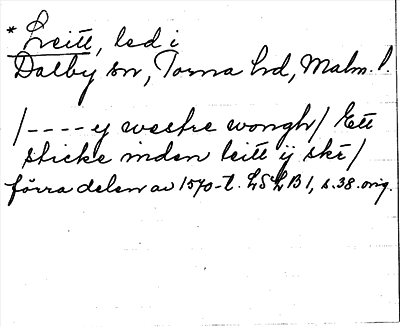 * Leitt, led i
Dalby sn, Torna hd, Malm. l.
/---- y westre wongh/ Ett
sticke inden leitt ij ske/
förra delen av 1570-t. LSLB 1, s. 38. orig.